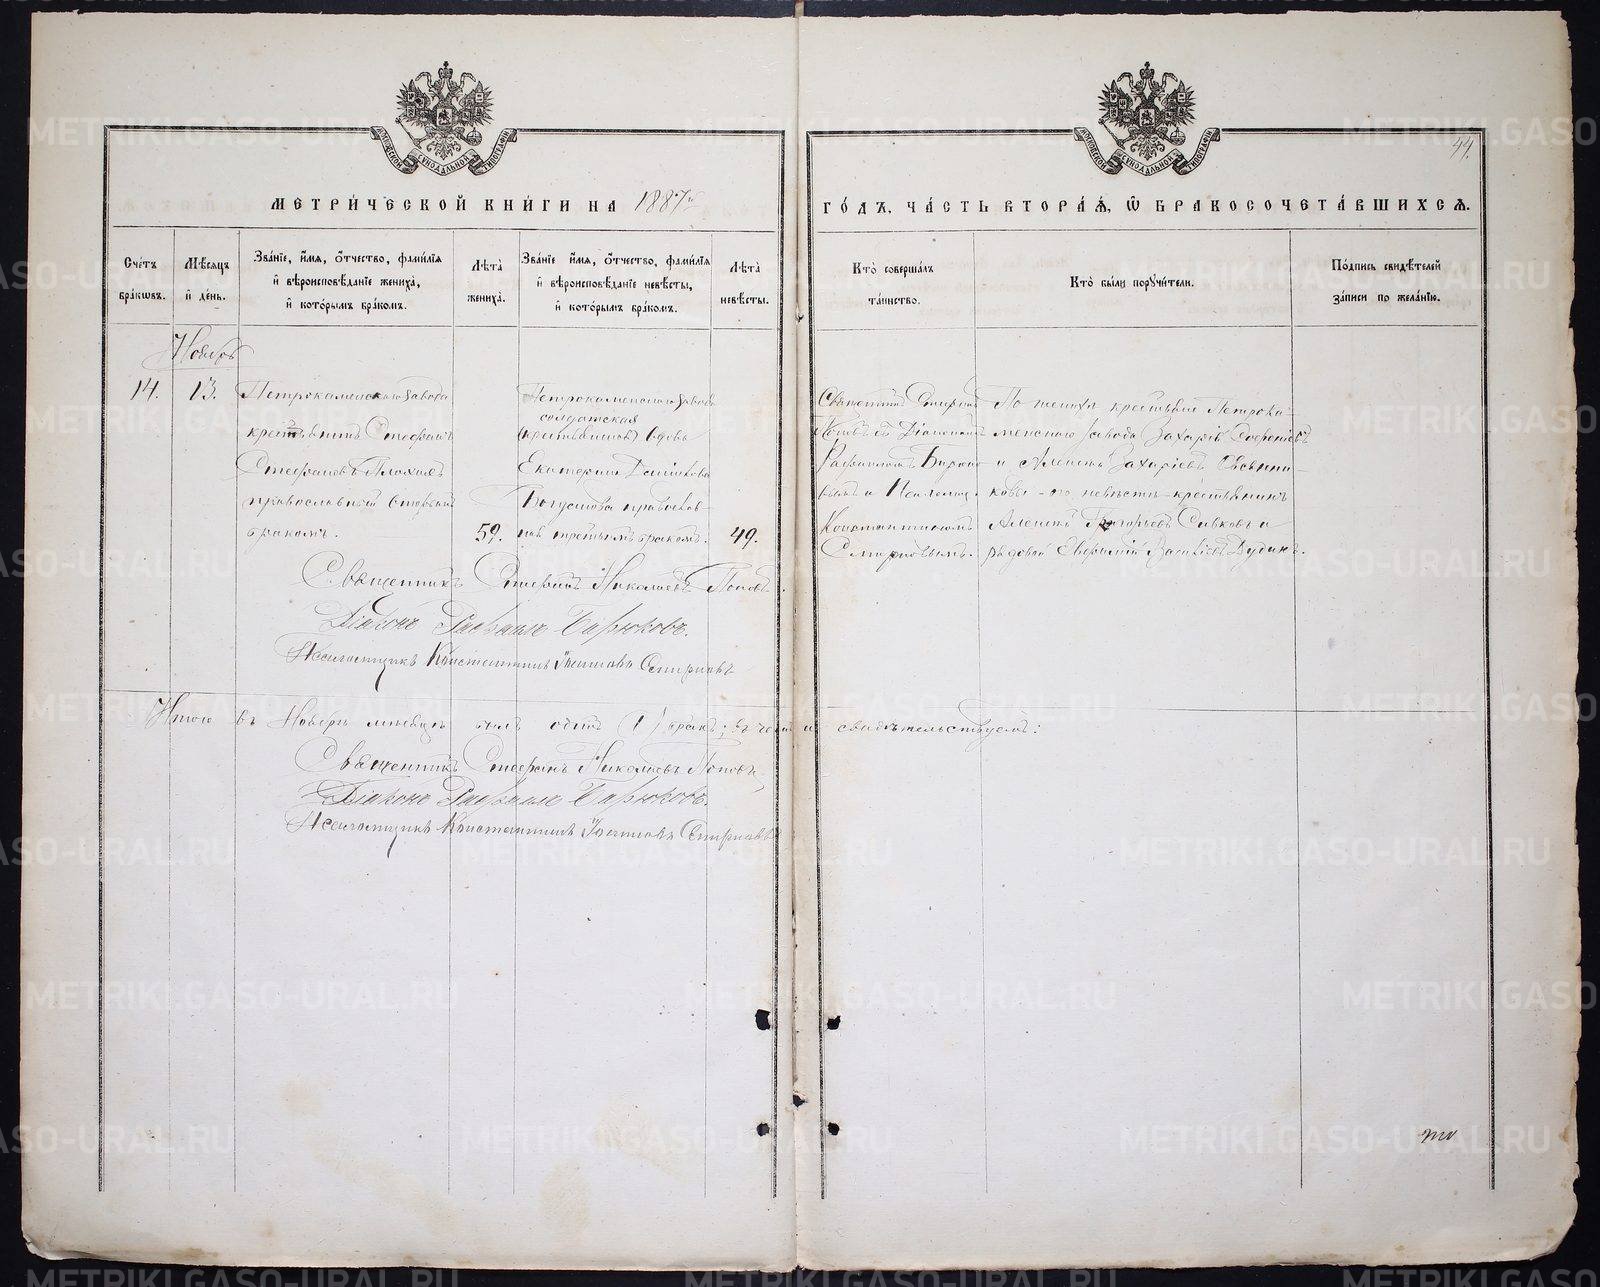 44.
МОСКОВСКОЙ СѴНОДАЛЬНОЙ ТИПОГРАФІИ
МОСКОВСКОЙ СѴНОДАЛЬНОЙ ТИПОГРАФІИ
МЕТРИ́ЧЕСКОЙ КНИ́ГИ НА 1887й ГО́ДЪ, ЧА́СТЬ ВТОРА́Ѧ, Ѿ БРАКОСОЧЕТА́ВШИХСѦ.
Сче́тъ бра́кѡвъ.
Мѣ́сѧцъ и҆ де́нь.
Зва́нїе, и҆́мѧ, ѻ҆́тчество, фами́лїѧ и҆ вѣроисповѣ́данїе жениха̀, и҆ кото́рымъ бра́комъ.
Лѣ́та жениха̀.
Зва́нїе и҆́мѧ, ѻ҆́тчество, фами́лїѧ и҆ вѣроисповѣ́данїе невѣ́сты, и҆ кото́рымъ бра́комъ.
Лѣ́та невѣ́сты.
Кто̀ соверша́лъ та́инство.
Кто̀ бы́ли порꙋчи́тели.
По́дпись свидѣ́телей за́писи по жела́нїю.
Ноябрь
14.
13.
Петрокаменскаго завода
крестьянинъ Стефанъ
Стефановъ
православный вторымъ
бракомъ.
59.
Петрокаменскаго завода
солдатская
(крестьянинъ) вдова
Екатерина
православ-
ная третьимъ бракомъ.
49.
Священникъ Стефанъ
Поповъ съ Діакономъ
Рафаиломъ Бирюко-
вымъ и Псаломщ.
Константиномъ
Смирновымъ.
По женихѣ крестьяне Петрока-
менскаго завода Захарій
и Алексѣй Захаріевъ Овсянни-
ковы - по невѣстѣ крестьянинъ
Алексѣй Григорьевъ Савковъ и
рядовой Евфимій Дудинъ.
Священникъ Стефанъ Николаевъ Поповъ.
Діаконъ Рафаилъ Бирюковъ.
Псаломщикъ Константинъ Іоанновъ Смирновъ
Итого въ Ноябрѣ мѣсяцѣ былъ одинъ (1) бракъ; въ чемъ и свидѣтельствуемъ:
Священникъ Стефанъ Николаевъ Поповъ,
Діаконъ Рафаилъ Бирюковъ.
Псаломщикъ Константинъ Іоанновъ Смирновъ
METRIKI.GASO-URAL.RU